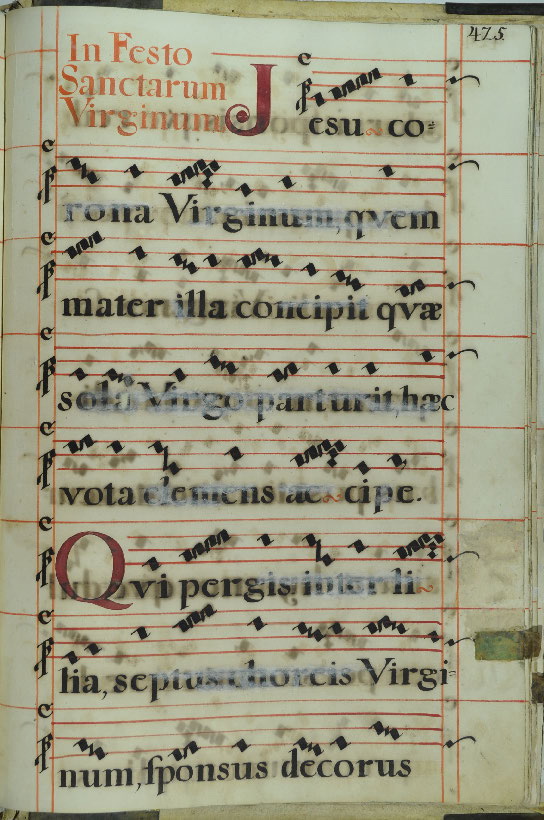 475.
In Festo
Sanctarum
Virginum
Jesu co=
rona Virginum, qvem
mater illa concipit qvæ
sola Virgo parturit, hæc
vota clemens ac cipe.
Qvi pergis inter li
lia, septus choreis Virgi=
num, sponsus decorus